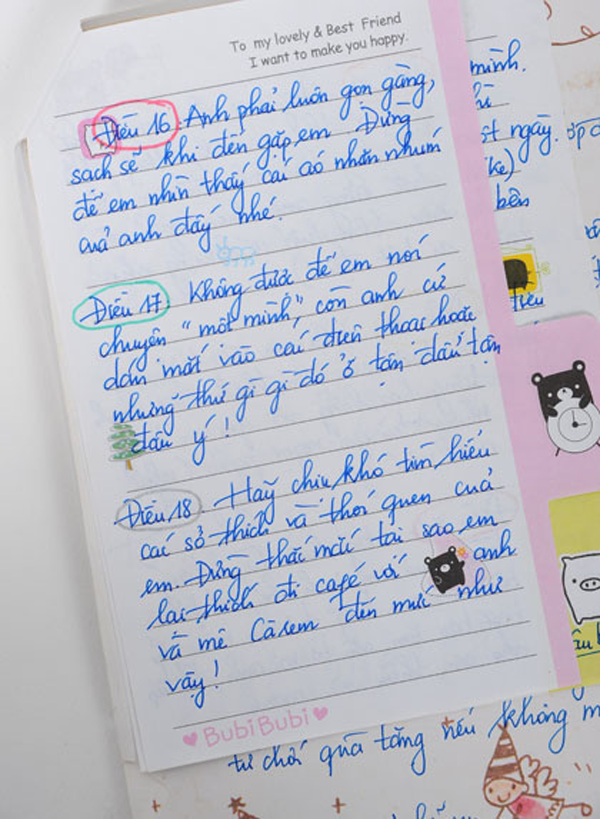 To my lovely & Best Friend
I want to make you happy.
Điều 16. Anh phải luôn gọn gàng,
sạch sẽ khi đến gặp em. Đừng
để em nhìn thấy cái áo nhăn nhúm
của anh đấy nhé.
Điều 17. Không được để em nói
chuyện "một mình", còn anh cứ
dán mắt vào cái điện thoại hoặc
những thứ gì gì đó ở tận đẩu tận
đâu ý!
Điều 18. Hãy chịu khó tìm hiểu
các sở thích và thói quen của
em. Đừng thắc mắc tại sao em
lại thích đi café với anh
và mê Càrem đến mức như
vậy!
BubiBubi
mình.
ngày.
bên
từ chối quà tặng nếu không